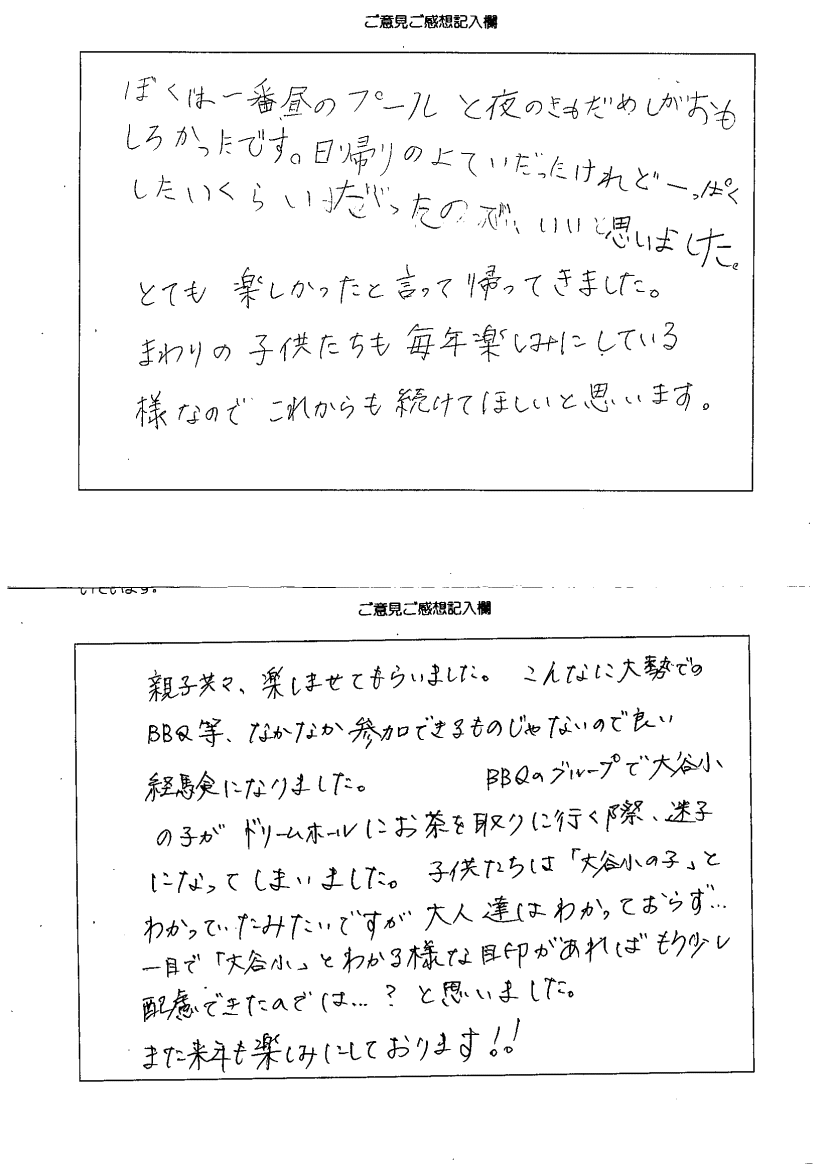 ご意見ご感想記入欄
ぼくは一番昼のプールと夜のきもだめしがおも
しろかったです。日帰りのよていだったけれど一っぱく
したいくらい だったので、いいと思いました。
とても楽しかったと言って帰ってきました。
まわりの子供たちも毎年楽しみにしている
様なのでこれからも続けてほしいと思います。
ご意見ご感想記入欄
親子共々、楽しませてもらいました。 こんなに大勢での
BBQ等、なかなか参加できるものじゃないので良い
経験になりました。 BBQのグループで大谷小
の子がドリームホールにお茶を取りに行く際、迷子
になってしまいました。子供たちは「大谷小の子」と
わかっていたみたいですが大人達はわかっておらず…
一目で「大谷小」とわかる様な目印があればもう少し
配慮できたのでは…？と思いました。
また来年も楽しみにしております!!